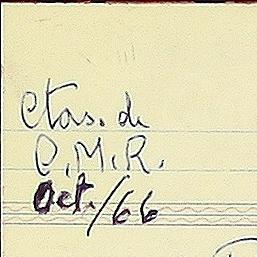 Ctas. de
C.M.R.
Oct./66